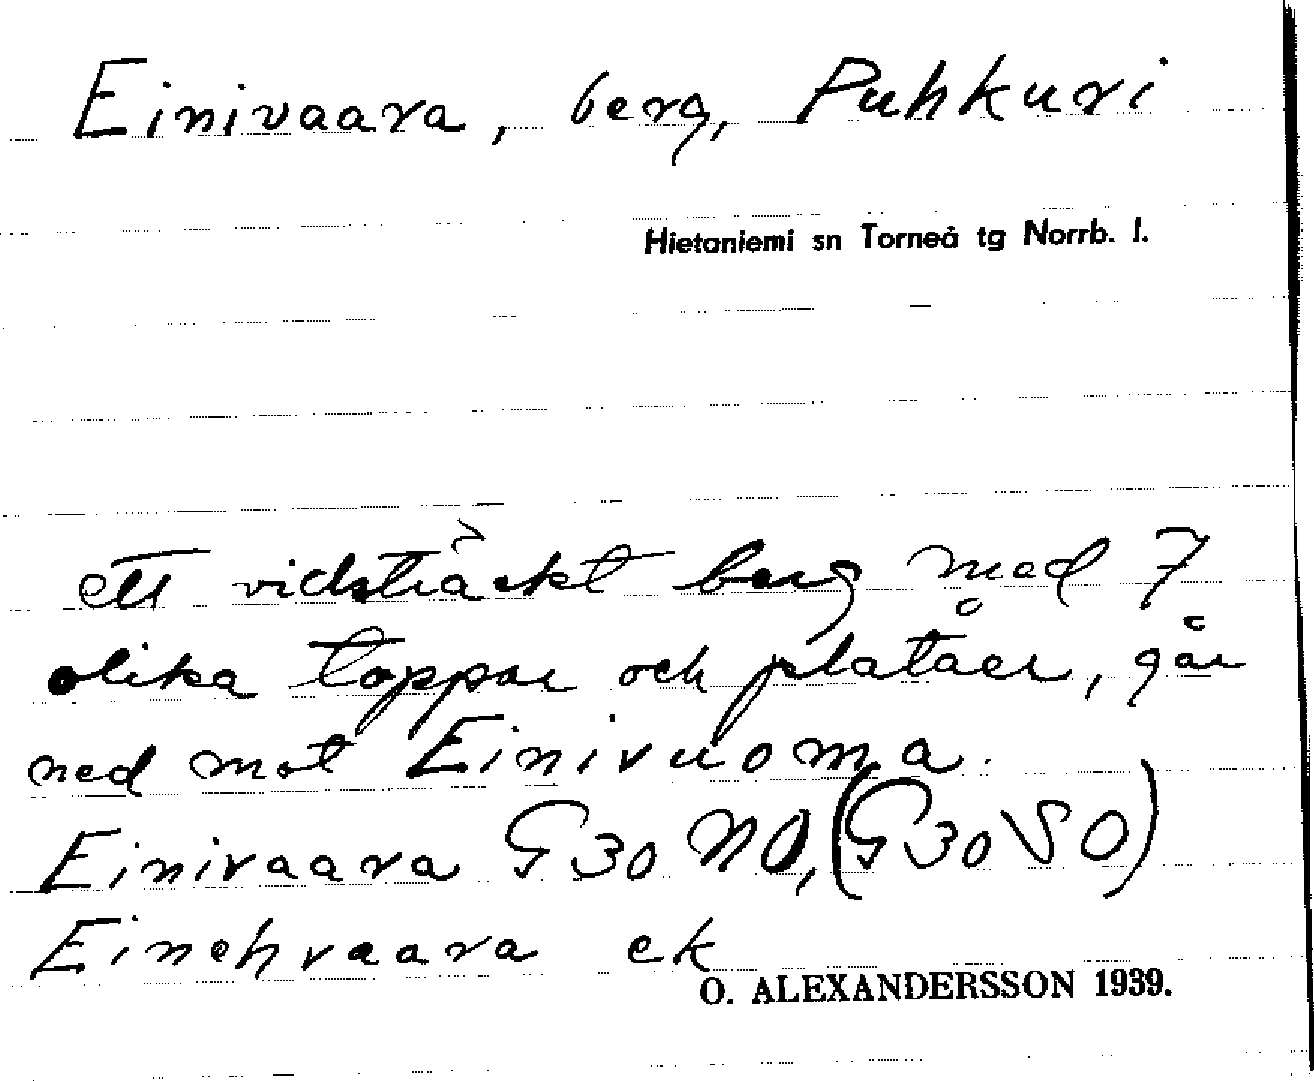 Einivaara, berg, Puhkuri
Hietaniemi sn Torneå tg Norrb. l.
ett vidsträckt berg med 7
olika toppar och platåer, går
ned mot Einivuoma.
Einivaara G30 NO, (G30 SO)
Einehvaara ek
O. ALEXANDERSSON 1939.